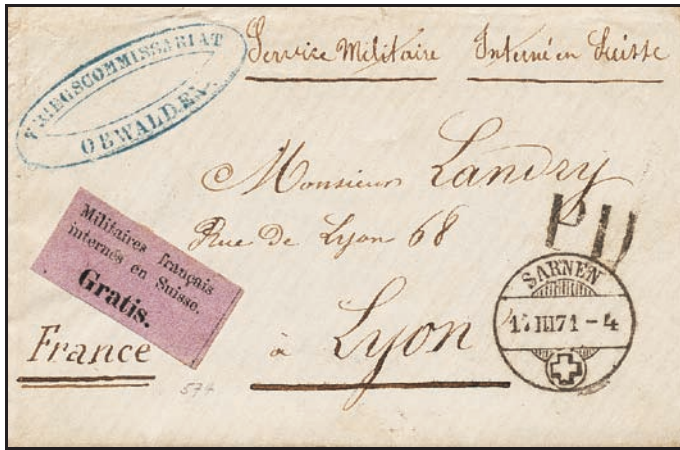 KRIEGSCOMMISSARIAT
OBWALDEN.
Service Militaire Interné en Suisse
Monsieur Landry
Rue De Lyon 68
à Lyon
France
Militaires français
internés en Suisse.
Gratis.
PD
SARNEN
III 71 - 4
574